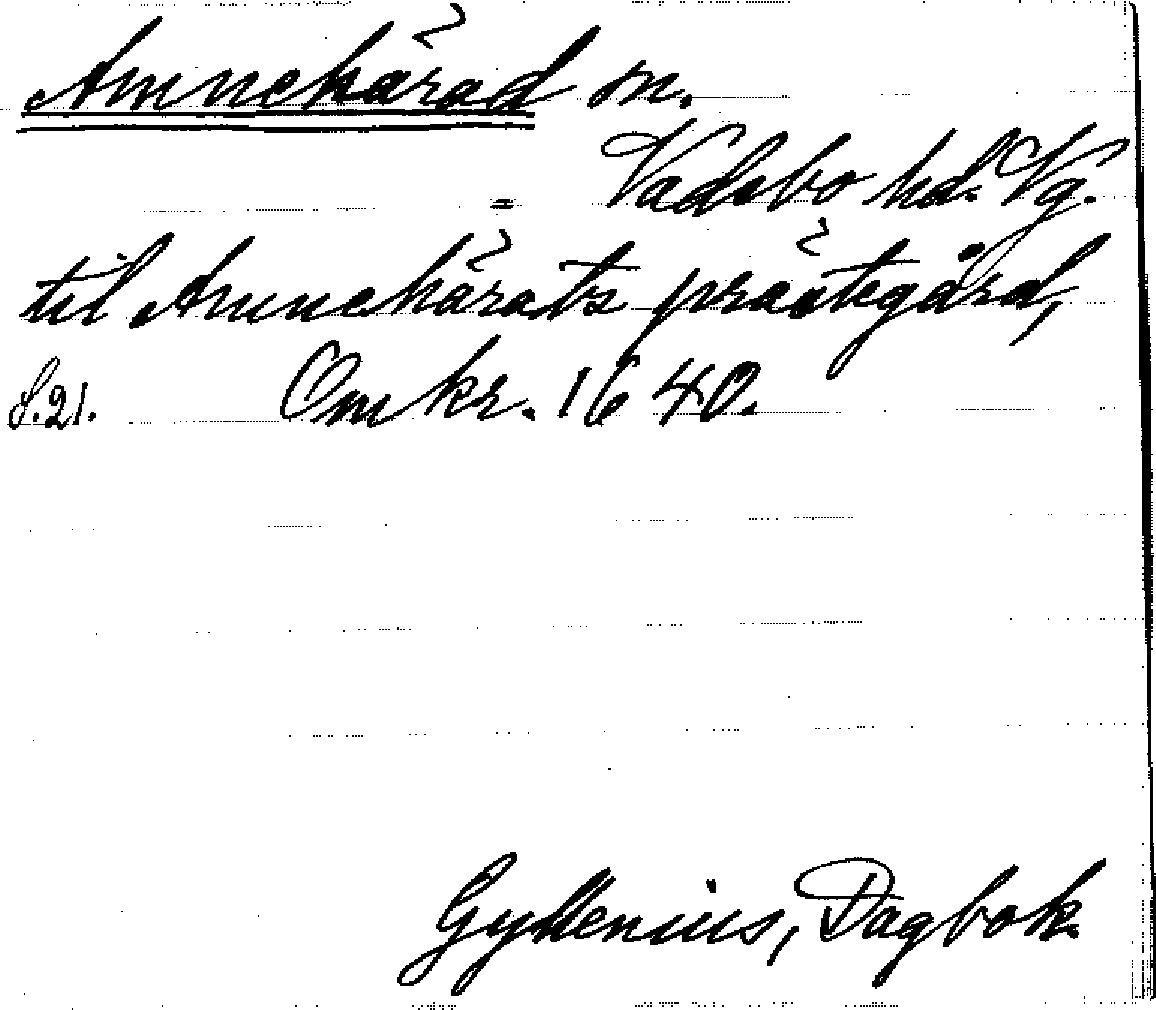 Amnehärad sn.
= Vadsbo hd. Vg.
til Amnehärats prästegård,
S. 21. Omkr. 1640.
Gyllenius, Dagbok.